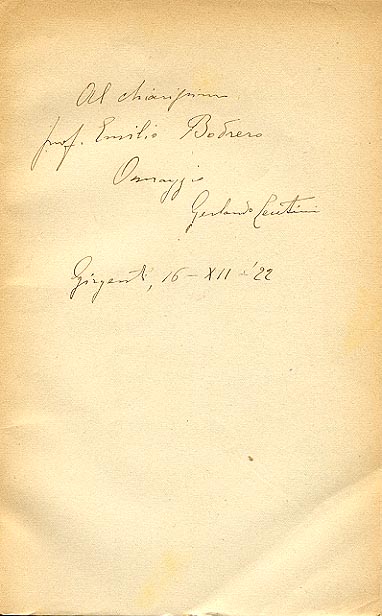 Al chiarissimo
prof. Emilio Bodrero
Omaggio
Gerlando Lentini
Girgenti, 16 - XII - '22